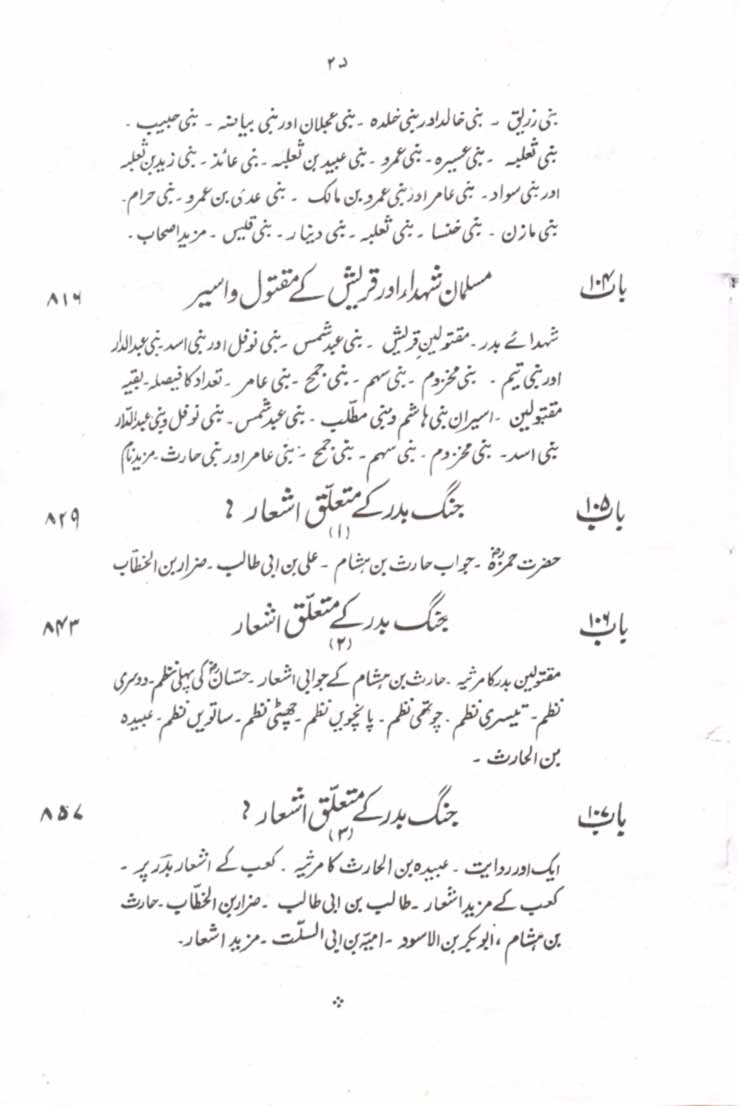 ۲۵
بنی زریق ۔ بنی خالد اور بنی خلدہ ۔ بنی عجلان اور بنی بیاضہ ۔ بنی حبیب ۔
بنی ثعلبہ ۔ بنی عسیرہ ۔ بنی عمرو ۔ بنی عبید بن ثعلبہ ۔ بنی عائذ ۔ بنی زید بن ثعلبہ
اور بنی سواد ۔ بنی عامر اور بنی عمرو بن مالک ۔ بنی عدی بن عمرو ۔ بنی حرام ۔
بنی مازن ۔ بنی خنسا ۔ بنی ثعلبہ ۔ بنی دینار ۔ بنی قلیس ۔ مزید اصحاب ۔
باب ۱۰۴ مسلمان شہداء اور قریش کے مقتول و اسیر ۸۱۶
شہدائے بدر ۔ مقتولینِ قریش ۔ بنی عبد شمس ۔ بنی نوفل اور بنی اسد بنی عبدالدار
اور بنی تیم ۔ بنی مخزوم ۔ بنی سہم ۔ بنی جمح ۔ بنی عامر ۔ تعداد کا فیصلہ ۔ بقیہ
مقتولین ۔ اسیران بنی ہاشم و بنی مطلب ۔ بنی عبد شمس ۔ بنی نوفل و بنی عبدالدّار
بنی اسد ۔ بنی مخزوم ۔ بنی سہم ۔ بنی جمح ۔ بنی عامر اور بنی حارث ۔ مزید نام
باب ۱۰۵ جنگ بدر کے متعلّق اشعار ؟ ۸۲۹
(۱)
حضرت حمزہؓ ۔ جواب حارث بن ہشام ۔ علی بن ابی طالب ۔ ضرار بن الخطّاب
باب ۱۰۶ جنگ بدر کے متعلّق اشعار ۸۴۳
(۲)
مقتولین بدر کا مرثیہ ۔ حارث بن ہشام کے جوابی اشعار ۔ حسّانؓ کی پہلی نظم ۔ دوسری
نظم ۔ تیسری نظم ۔ چوتھی نظم ۔ پانچویں نظم ۔ چھٹی نظم ۔ ساتویں نظم ۔ عبیدہ
بن الحارث ۔
باب ۱۰۷ جنگ بدر کے متعلّق اشعار ؟ ۸۵۷
(۳)
ایک اور روایت ۔ عبیدہ بن الحارث کا مرثیہ ۔ کعب کے اشعار بدر پر ۔
کعب کے مزید اشعار ۔ طالب بن ابی طالب ۔ ضرار بن الخطّاب ۔ حارث
بن ہشام ، ابوبکر بن الاسود ۔ امیّہ بن ابی السلّت ۔ مزید اشعار ۔